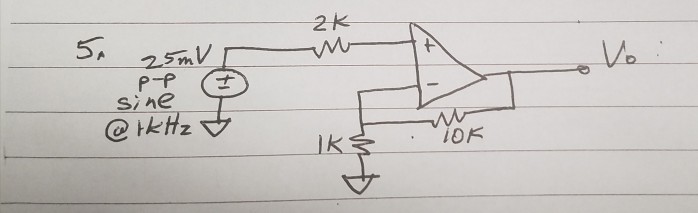 5.
25mV
p-p
sine
@1kHz
2K
+
-
±
1K
10K
Vo